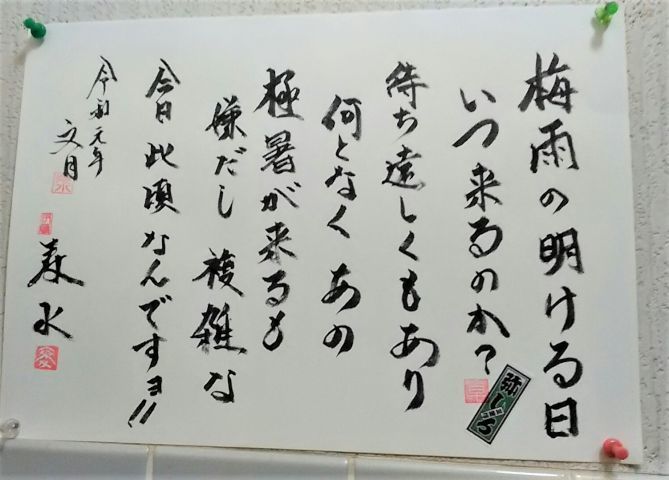 梅雨の明ける日
いつ来るのか?
待ち遠しくもあり
何となく あの
極暑が来るも
嫌だし 複雑な
今日此頃なんですヨ!!
令和元年
文月
弥しろ